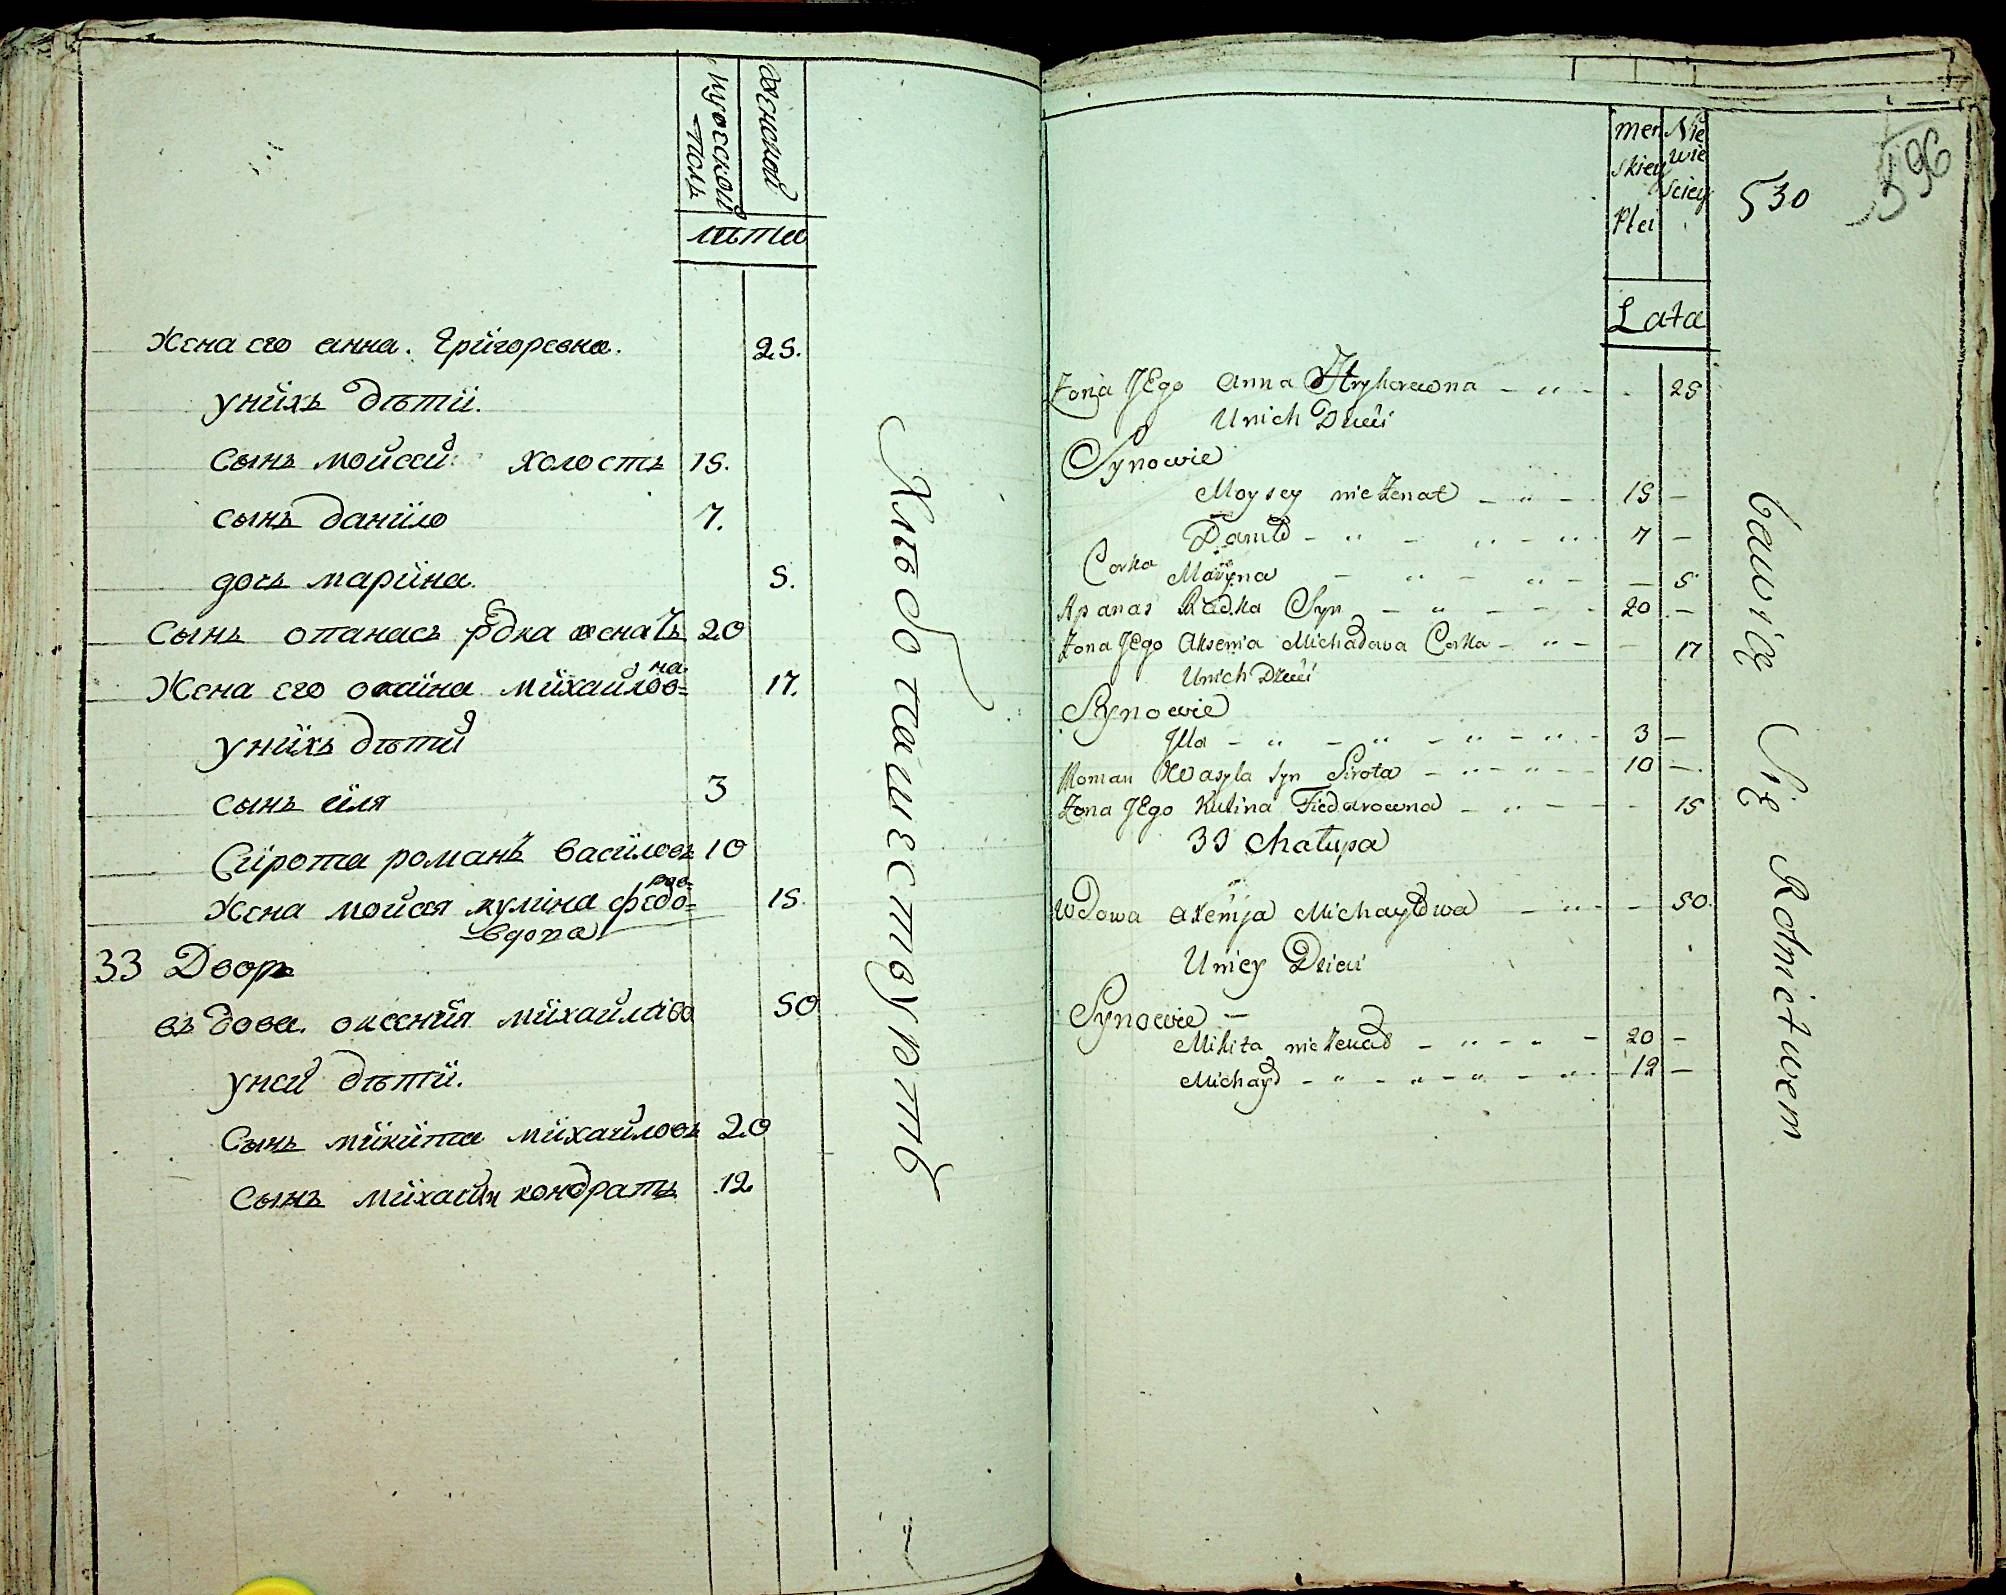 мужеской
поль
женской
лѣта
Жена его анна. Григоревна. 25.
унихъ дѣти.
сынъ мойсей холостъ 15.
сынъ данило 7.
дочь марина. 5.
Сынъ опанасъ рдка женатъ 20
Жена его оксина михайловна 17.
унихъ дѣти
сынъ иля 3
Сирота романъ василовъ 10
Жена мойсея кулина федорова 15.
вдова
33 Дворъ
въдова. оксения михайлава 50
уней дѣти.
Сынъ микита михайловъ 20
Сынъ михайл кондратъ 12
Хлѣбопашествуютъ
Men
skiey
Plei
Nie
wie
sciey
530
596
Lata
Zona JEgo Anna Hryhorewna 25
Unich Dzieci
Synowie
Moysey nie Zenat 15
Daniło 7
Corka Maryna 5
Apanas Radka Syn 20
Zona JEgo Aksenia Michałowa Corka 17
Unich Dzieci
Synowie
Jlla 3
Roman Wasyla Syn Sirota 10
Zona JEgo Kulina Fiedarowna 15
33 Chałupa
Wdowa Axenija Michayłowa 50.
Uniey Dzieci
Synowie
Mikita nie Zenat 20
Michayło 12
bawią Się Rolnictwem